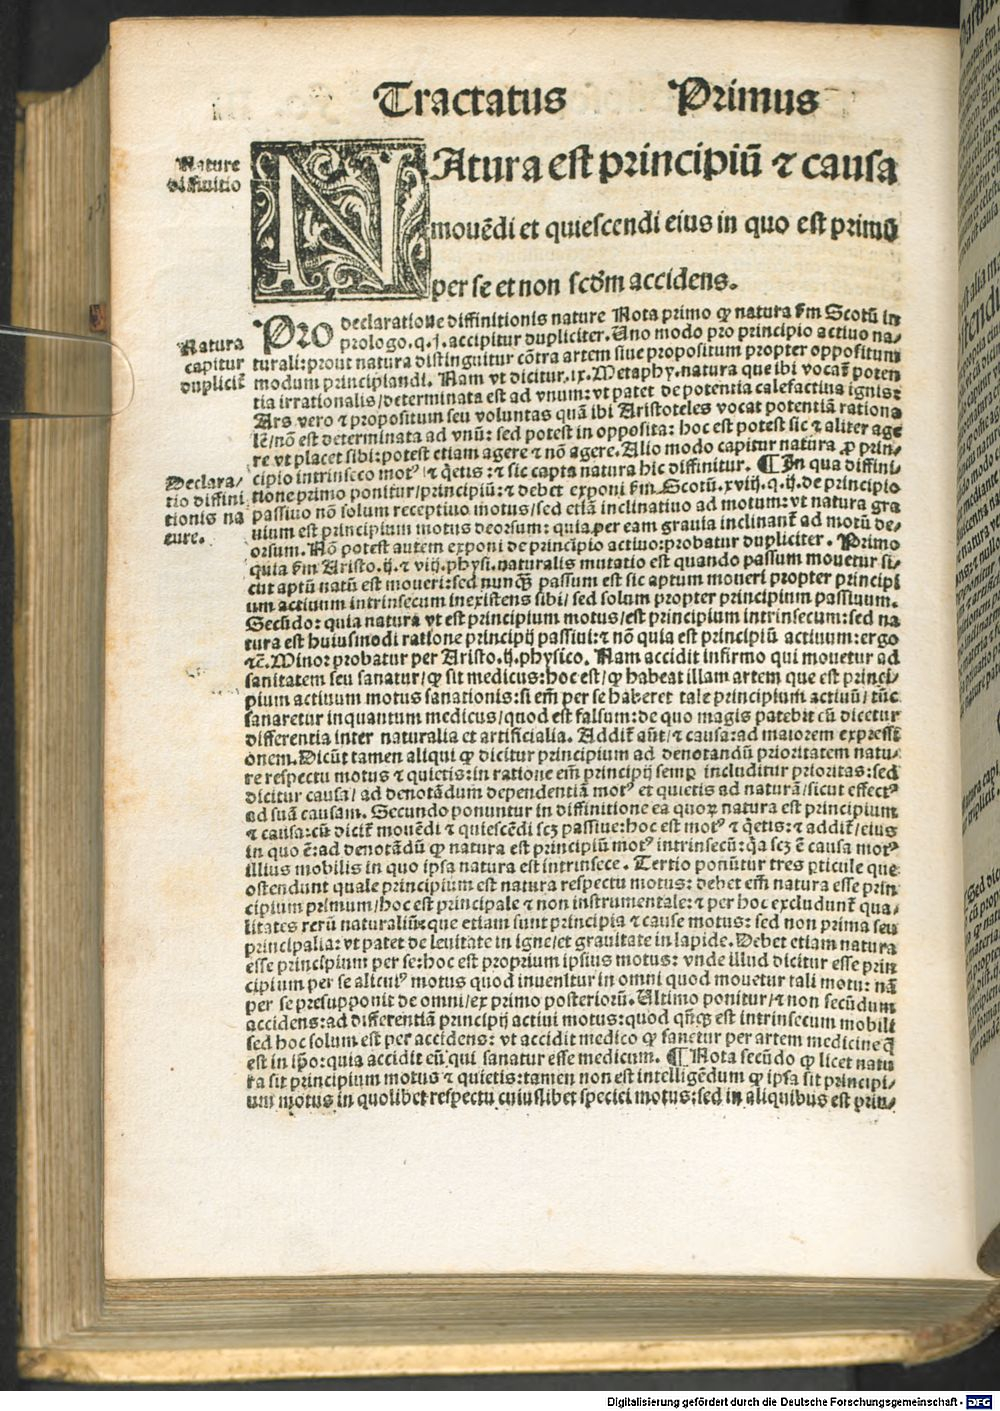 Tractatus Primus
Nature
diffinitio
NAtura est principiū ⁊ causa
mouēdi et quiescendi eius in quo est primū
per se et non scd̄m accidens.
PRO declaratione diffinitionis nature Nota primo ꝙ natura fm̄ Scotū in
prologo.q.j.accipitur dupliciter. Uno modo pro principio actiuo na⸗
Natura
capitur
duplicit̄
turali:prout natura distinguitur cōtra artem siue propositum propter oppositum
modum principiandi. Nam vt dicitur.ix.Metaphy.natura que ibi vocat̄ poten
tia irrationalis/determinata est ad vnum:vt patet de potentia calefactiua ignis:
Ars vero ⁊ propositum seu voluntas quā ibi Aristoteles vocat potentiā rationa
lē/nō est determinata ad vnū: sed potest in opposita: hoc est potest sic ⁊ aliter age
re vt placet sibi:potest etiam agere ⁊ nō agere. Alio modo capitur natura ꝓ prin⸗
cipio intrinseco motꝰ ⁊ q̄etis: ⁊ sic capta natura hic diffinitur. ¶ In qua diffini⸗
Declara⸗
tio diffini
tionis na
ture.
tione primo ponitur/principiū: ⁊ debet exponi fm̄ Scotū.xviij.q.ij.de principio
passiuo nō solum receptiuo motus/sed etiā inclinatiuo ad motum: vt natura gra
uium est principium motus deorsum: quia per eam grauia inclinant̄ ad motū de⸗
orsum. Nō potest autem exponi de principio actiuo:probatur dupliciter. Primo
quia fm̄ Aristo.ij.⁊ viij.physi.naturalis mutatio est quando passum mouetur si⸗
cut aptū natū est moueri:sed nunqȝ passum est sic aptum moueri propter principi
um actiuum intrinsecum inexistens sibi/sed solum propter principium passiuum.
Secūdo: quia natura vt est principium motus/est principium intrinsecum:sed na
tura est huiusmodi ratione principij passiui:⁊ nō quia est principiū actiuum:ergo
⁊c̄.Minor probatur per Aristo.ij.physico. Nam accidit infirmo qui mouetur ad
sanitatem seu sanatur/ꝙ sit medicus:hoc est/ꝙ habeat illam artem que est princi⸗
pium actiuum motus sanationis:si em̄ per se haberet tale principium actiuū/tūc
sanaretur inquantum medicus/quod est falsum:de quo magis patebit cū dicetur
differentia inter naturalia et artificialia. Addit̄ aūt/⁊ causa:ad maiorem expressi
onem.Dicūt tamen aliqui ꝙ dicitur principium ad denotandū prioritatem natu⸗
re respectu motus ⁊ quietis:in ratione em̄ principij semꝑ includitur prioritas:sed
dicitur causa/ad denotādum dependentiā motꝰ et quietis ad naturā/sicut effectꝰ
ad suā causam. Secundo ponuntur in diffinitione ea quoꝝ natura est principium
⁊ causa:cū dicit̄ mouēdi ⁊ quiescēdi scȝ passiue:hoc est motꝰ ⁊ q̄etis:⁊ addit̄/eius
in quo ē:ad denotādū ꝙ natura est principiū motꝰ intrinsecū:q̄a scȝ ē causa motꝰ
illius mobilis in quo ipsa natura est intrinsece. Tertio ponūtur tres ꝑticule que
ostendunt quale principium est natura respectu motus: debet em̄ natura esse prin
cipium primum/hoc est principale ⁊ non instrumentale:⁊ per hoc excludunt̄ qua⸗
litates rerū naturaliū:que etiam sunt principia ⁊ cause motus: sed non prima seu
principalia: vt patet de leuitate in igne/et grauitate in lapide. Debet etiam natura
esse principium per se:hoc est proprium ipsius motus: vnde illud dicitur esse prin
cipium per se alicuiꝰ motus quod inuenitur in omni quod mouetur tali motu: nā
per se presupponit de omni/ex primo posteriorū. Ultimo ponitur/⁊ non secūdum
accidens:ad differentiā principij actiui motus:quod qn̄qȝ est intrinsecum mobili
sed hoc solum est per accidens: vt accidit medico ꝙ sanetur per artem medicine q̄
est in ip̄o:quia accidit eū qui sanatur esse medicum. ¶ Nota secūdo ꝙ licet natu
ra sit principium motus ⁊ quietis:tamen non est intelligēdum ꝙ ipsa sit principi⸗
um motus in quolibet respectu cuiuslibet speciei motus:sed in aliquibus est prin⸗
Digitalisierung gefördert durch die Deutsche Forschungsgemeinschaft - DFG